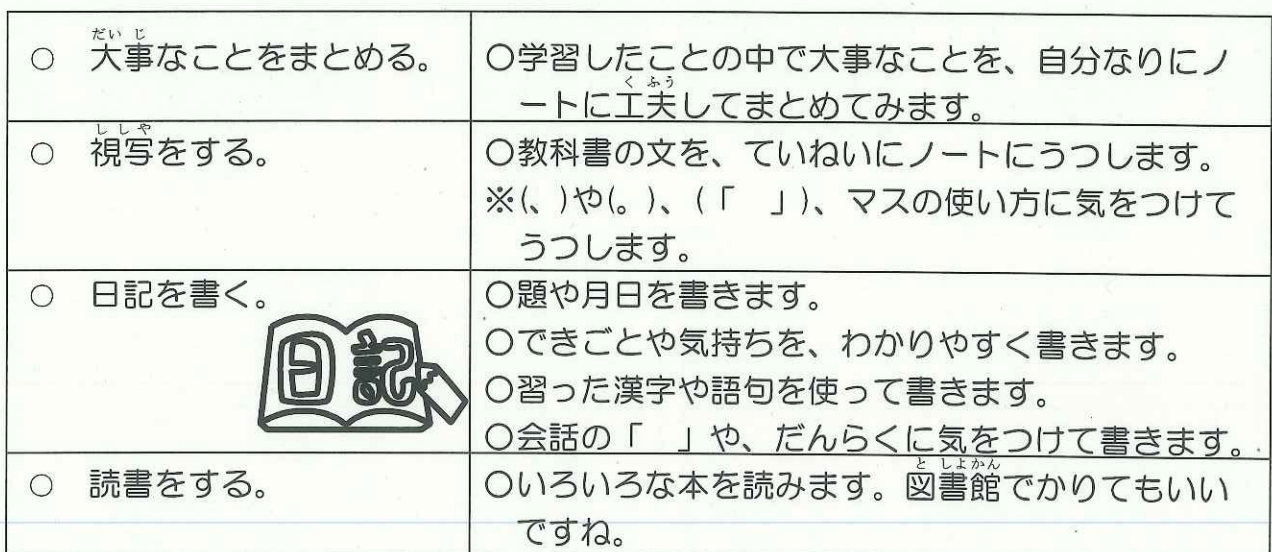 ○ 大事なことをまとめる。
○学習したことの中で大事なことを、自分なりにノ
ートに工夫してまとめてみます。
○ 視写をする。
○教科書の文を、ていねいにノートにうつします。
※(、)や(。)、(「　」)、マスの使い方に気をつけて
うつします。
○ 日記を書く。
日記
○題や月日を書きます。
○できごとや気持ちを、わかりやすく書きます。
○習った漢字や語句を使って書きます。
○会話の「　」や、だんらくに気をつけて書きます。
○ 読書をする。
○いろいろな本を読みます。図書館でかりてもいい
ですね。